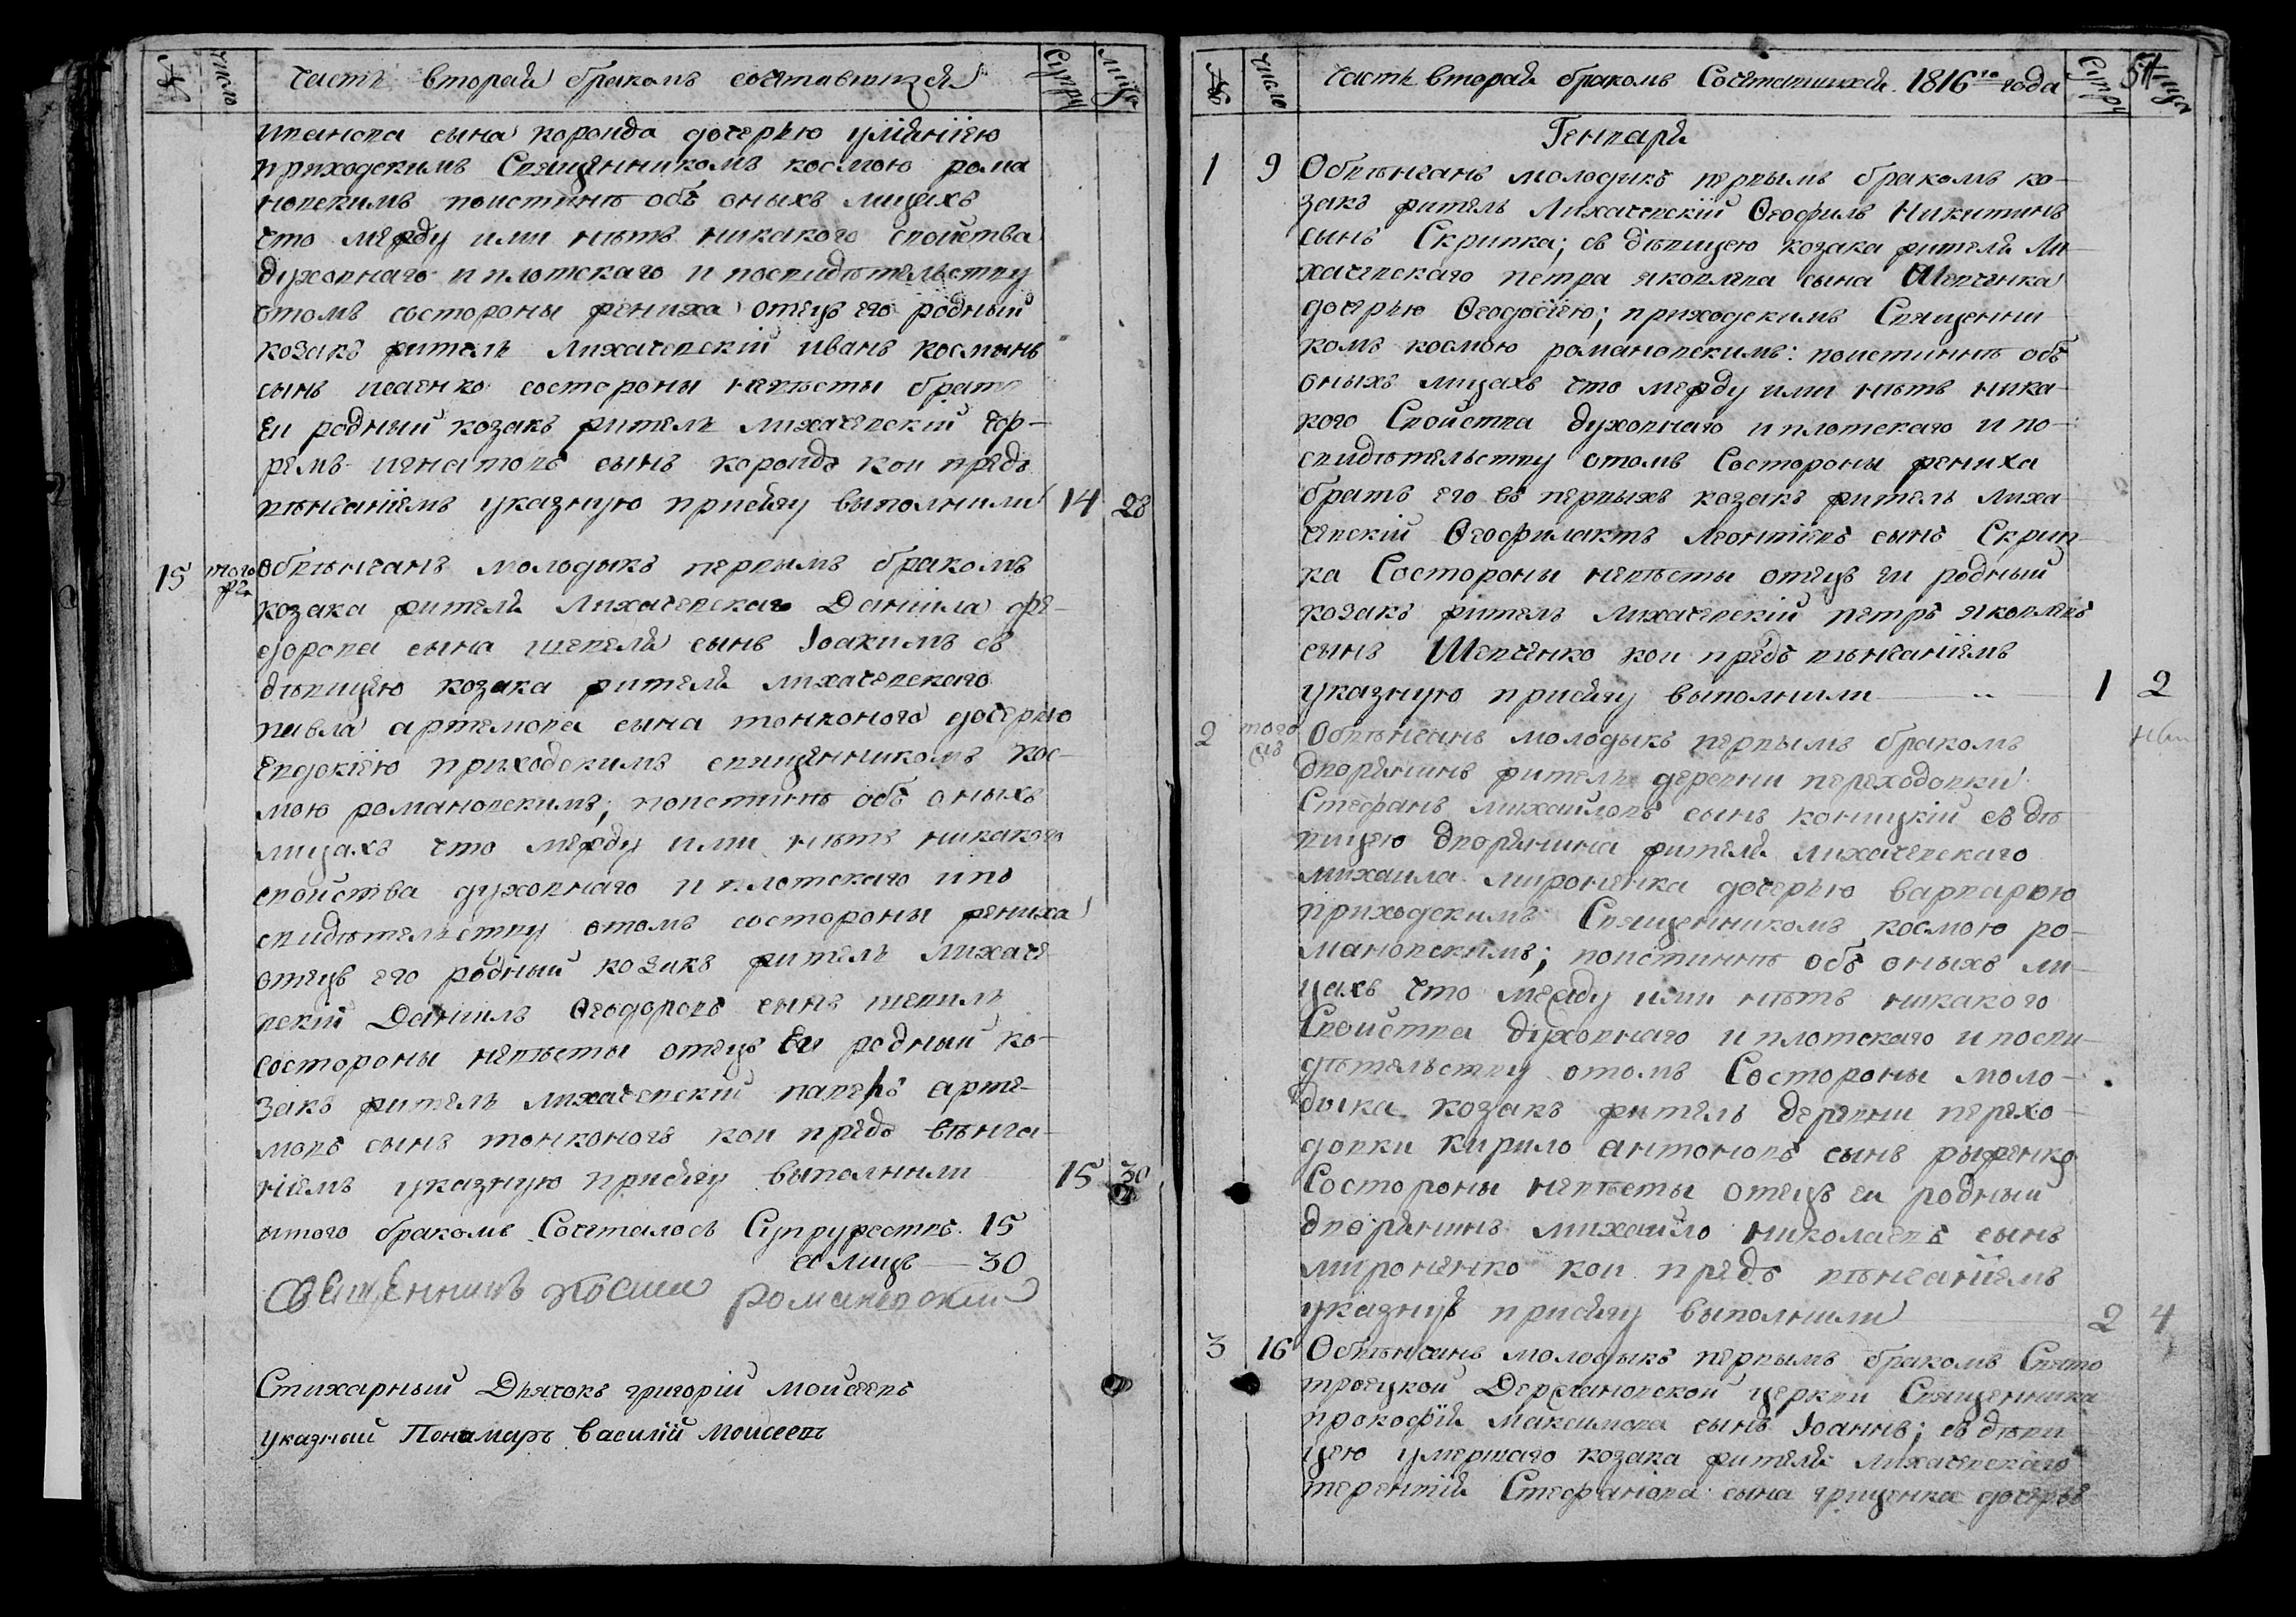 № число часть вторая бракомъ сочетавшихся Супру лица
иванова сына коропда дочерью улїянїею
приходскимъ Священникомъ космою рома
новскимъ поистиннѣ объ оныхъ лицахъ
что между ими нѣтъ никакого свойства
духовнаго и плотскаго и посвидѣтельству
отомъ состороны жениха отецъ его родный
козакъ житель Лихачевскїй иванъ космынъ
сынъ исаенко состороны невѣсты братъ
еи родный козакъ житель лихачевскїй
игнатовъ сынъ коропдъ кои предъ
вѣнчанїемъ указную присягу выполнили 14 28
15 того же Обвѣнчанъ молодыкъ первымъ бракомъ
козака жителя Лихачевскаго Данїила фе-
едорова сына шепеля сынъ Іоакимъ съ
дѣвицею козака жителя лихачевскаго
павла артемова сына тонконога дочерью
Евдокїею приходскимъ священникомъ кос-
мою романовскимъ; поистиннѣ объ оныхъ
лицахъ что между ими нѣтъ никакого
свойства духовнаго и плотскаго и по
свидѣтельству отомъ состороны жениха
отецъ его родный козакъ житель лихаче
вскїй Данїилъ Ѳеодоровъ сынъ шепиль
состороны невѣсты отецъ Еи родный ко-
закъ житель лихачевскїй павелъ арте-
мовъ сынъ тонконогъ кои предъ вѣнча-
нїемъ указную присягу выполнили 15 30
итого бракомъ Сочеталось Супружествъ 15
а лицъ — 30
Священникъ Косма Романовский
Стихарный Дьячокъ григорїй Моисеевъ
указный Пономарь василїй Моисеевъ
№ число часть вторая бракомъ Сочетавшихся 1816го года Супру лица
Генваря
1 9 Обвѣнчанъ молодыкъ первымъ бракомъ ко-
закъ житель Лихачевскїй Ѳеофилъ Никитинъ
сынъ Скрипка; съ дѣвицею козака жителя Ли-
хачевскаго петра яковлева сына Шевченка
дочерью Ѳеодосїею; приходскимъ Священни
комъ космою романовскимъ: поистиннѣ объ
оныхъ лицахъ что между ими нѣтъ ника-
кого Свойства духовнаго и плотскаго и по-
свидѣтельству отомъ Состороны жениха
братъ его въ первыхъ козакъ житель лиха
чевскїй Ѳеофилактъ Леонтїевъ сынъ Скрип-
ка Состороны невѣсты отецъ еи родный
козакъ житель лихачевскїй петръ яковлевъ
сынъ Шевченко кои предъ вѣнчанїемъ
указную присягу выполнили 1 2
2 того Обвѣнчанъ молодыкъ первымъ бракомъ
дворянинъ житель деревни переходовки
Стефанъ михаиловъ сынъ коницкїй съ дѣ
вицею дворянина жителя лихачевскаго
михаила мироненка дочерью варварою
приходскимъ Священникомъ космою ро-
мановскимъ; поистиннѣ объ оныхъ ли-
цахъ что между ими нѣтъ никакого
Свойства духовнаго и плотскаго и посви-
дѣтельству отомъ Состороны моло-
дыка козакъ житель деревни перехо-
довки кирило антоновъ сынъ рыженко
Состороны невѣсты отецъ еи родный
дворянинъ михайло николаевъ сынъ
мироненко кои предъ вѣнчанїемъ
указную присягу выполнили 2 4
3 16 Обвѣнчанъ молодыкъ первымъ бракомъ Свято
троецкой Держановской церкви Священника
прокофїя максимова сынъ Іоаннъ; съ дѣви
цею умершаго козака жителя лихачевскаго
терентїя Стефанова сына гриценка дочерью